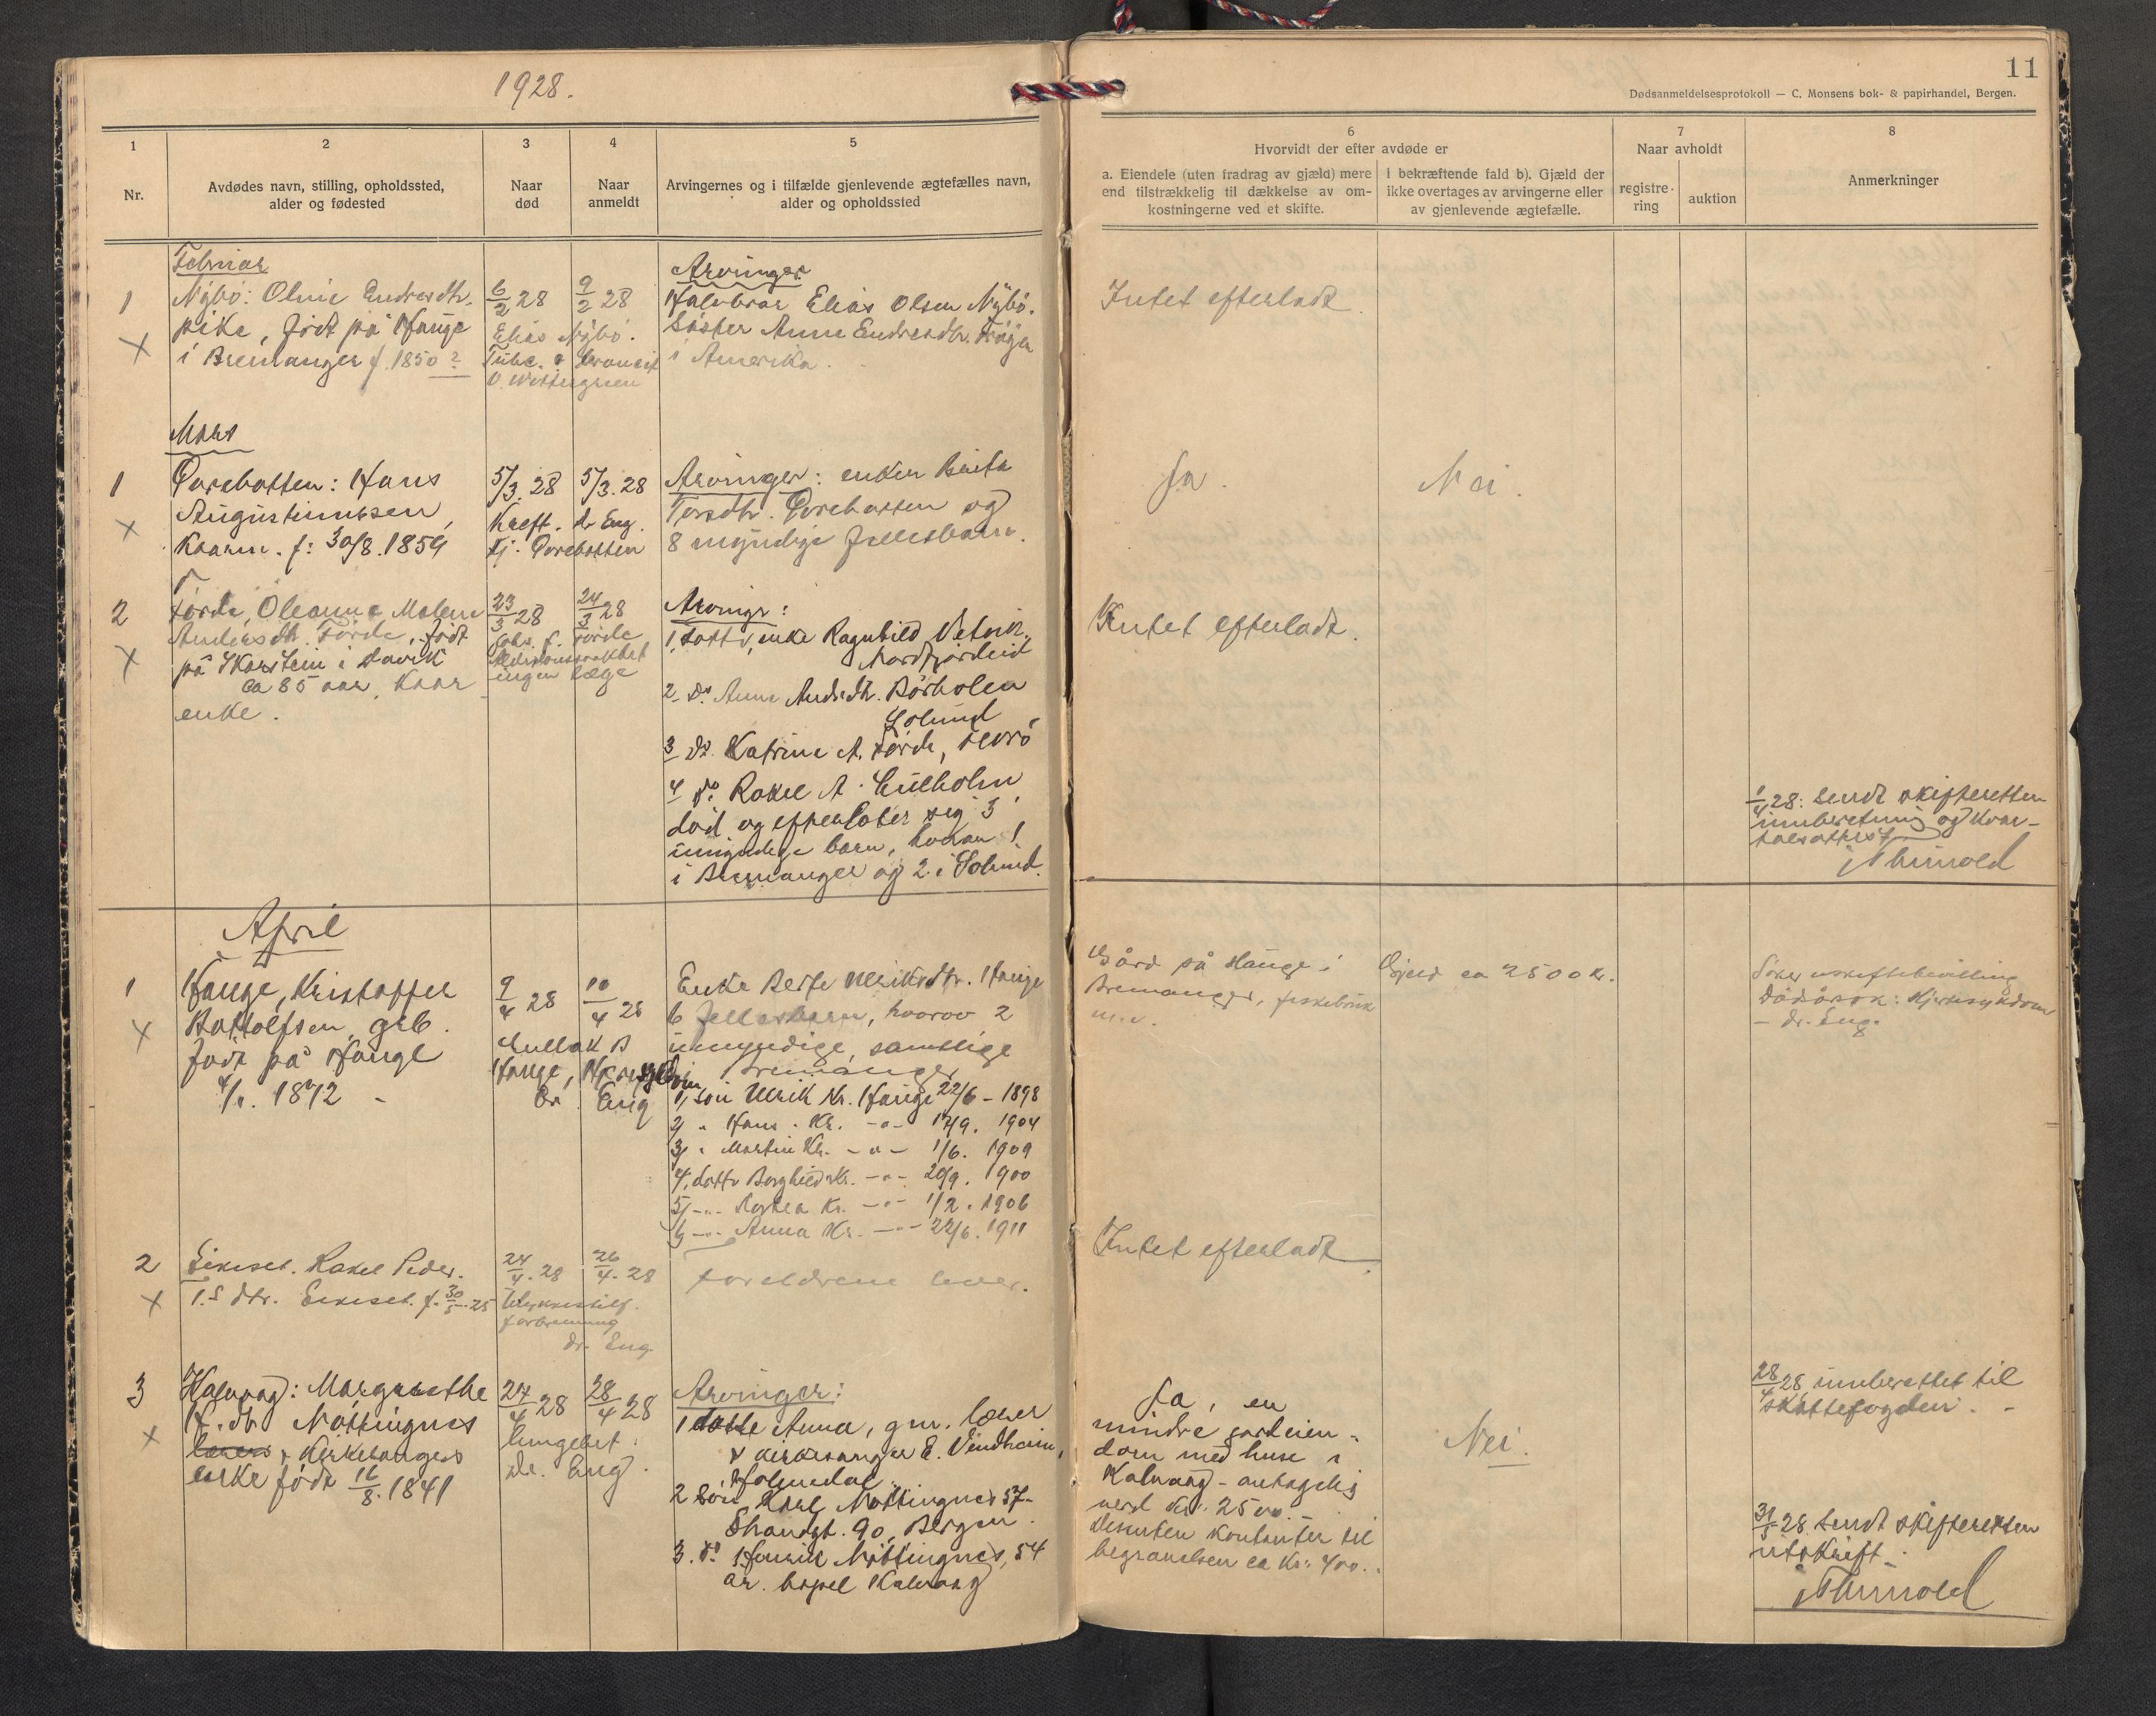 1928.
11
Dødsanmeldelsesprotokoll — C. Monsens bok- & papirhandel, Bergen.
1
Nr.
2
Avdødes navn, stilling, opholdssted,
alder og fødested
3
Naar
død
4
Naar
anmeldt
5
Arvingernes og i tilfælde gjenlevende ægtefælles navn,
alder og opholdssted
6
Hvorvidt der efter avdøde er
a. Eiendele (uten fradrag av gjæld) mere
end tilstrækkelig til dækkelse av om-
kostningerne ved et skifte.
I bekræftende fald b). Gjæld der
ikke overtages av arvingerne eller
av gjenlevende ægtefælle.
7
Naar avholdt
registre-
ring
auktion
8
Anmerkninger
Februar
1
Nybö: Oline Endresdtr.
pike, födt på Hauge
i Bremanger f. 1850?
6/2 28
9/2 28
Elias Nybö.
Arvinger
Halvbror Elias Olsen Nybö.
Söster Anne Endresdtr.
i Amerika.
Intet efterladt
Mars
1
Hans
Augustinussen,
Kaarm. f: 30/8. 1859
5/3. 28
5/3. 28
Kreft. dr Eng.
Arvinger: enken Berta
og
8 myndige fellesbarn.
Ja.
Nei.
2
Förde, Oleanna Malene
Andersdtr. Förde, födt
på Skarstein i Davik
ca 85 aar, Kaar
enke.
23/3 28
24/3 28
Förde
ingen læge
Arvinger:
1, datter, enke Ragnhild
Nordfjordeid
2 do Anne Andrsdtr. Börholm
Solund
3 do. Katrine A. Förde,
4 do. Rakel A.
död og efterlater seg 3
umyndige barn, hvorav 1
i Bremanger og 2 i Solund.
Intet efterladt.
1/4 28: Sendt skifteretten
innberetning og kvar-
talsattest
April
1
Hauge, Kristoffer
Botolfsen, grb.
födt på Hauge
1872
9/4 28
10/4 28
Hauge,
Dr. Eng
Enke Berte Ulriksdtr. Hauge
6 fellesbarn, hvorav 2
umyndige, samtlige
Bremanger
1, sön Ulrik Kr. Hauge 22/6 - 1898
2, " Hans Kr. -"- 17/9. 1904
3, " Martin Kr. -"- 1/6. 1909
4, datter Borghild Kr. -"- 20/9. 1900
5, -"- Kr. -"- 1/2. 1906
6, -"- Anna Kr. -"- 22/6. 1911
Gård på Hauge i
Bremanger, fiskebruk
m.v.
Gjeld ca 2500 kr.
Söker uskiftebevilling
Dödsårsak: Hjertesykdom
- dr. Eng.
2
Eikeset. Rakel Peder.
dtr. Eikeset. f. 30/5 25
24/4. 28
26/4. 28
Ulykkestilf.
forbrenning
dr. Eng.
Foreldrene lever.
Intet efterladt
3
Kalvaag: Margrethe
H. dtr Nöttingnes
lærer & Kirkesangers
enke födt 16/8. 1841
24/4 28
28/4 28
lungebet.
dr. Eng.
Arvinger:
1 datter Anna, gm. lærer
& kirkesanger E. Vindheim,
Holmedal.
2 Sön Karl Nöttingnes 57
Strandgt. 90, Bergen.
3. do Henrik Nöttingnes, 54
år. bopel Kalvaag
Ja, en
mindre jordeien-
dom med huse i
Kalvaag - antagelig
verd kr. 2500.-
Desuten kontanter til
begravelsen ca Kr. 400.
Nei.
28/4 28 innberettet til
skattefogden.
31/5 28 Sendt skifteretten
utskrift.